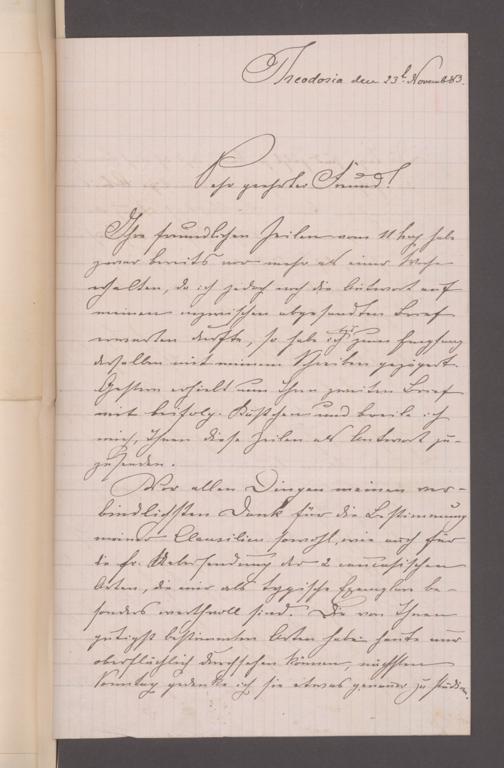 Theodosia den 23t. Novemb. 83.
Sehr geehrter Freund!
Ihre freundlichen Zeilen vom 11 habe
zwar bereits vor mehr als einer Woche
erhalten, da ich jedoch noch die Antwort auf
meinen inzwischen abgesandten Brief
erwarten durfte, so habe ich bis zum Empfang
desselben mit meinem Schreiben gezögert.
Gestern erhielt nun Ihren zweiten Brief
mit beifolg. Kästchen und beeile ich
mich, Ihnen diese Zeilen als Antwort zu-
zusenden.
Vor allen Dingen meinen ver-
bindlichsten Dank für die Bestimmung
meiner Clausilien sowohl, wie auch für
die fr. Uebersendung der 2 caucasischen
Arten, die mir als typische Exemplare be-
sonders werthvoll sind. Die von Ihnen
gütigst bestimmten Arten habe heute nur
oberflächlich durchsehen können, nächsten
Sonntag gedenke ich sie etwas genauer zu studien.